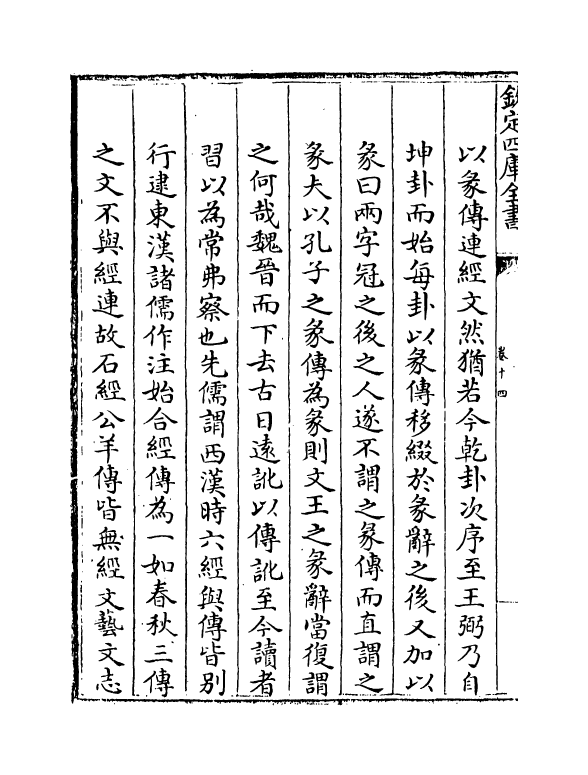 欽定四庫全書
卷十四
以彖傳連經文然猶若今乾卦次序至王弼乃自
坤卦而始每卦以彖傳移綴於彖辭之後又加以
彖曰兩字冠之後之人遂不謂之彖傳而直謂之
彖夫以孔子之彖傳為彖則文王之彖辭當復謂
之何哉魏晉而下去古日遠訛以傳訛至今讀者
習以為常弗察也先儒謂西漢時六經與傳皆别
行逮東漢諸儒作注始合經傳為一如春秋三傳
之文不與經連故石經公羊傳皆無經文藝文志